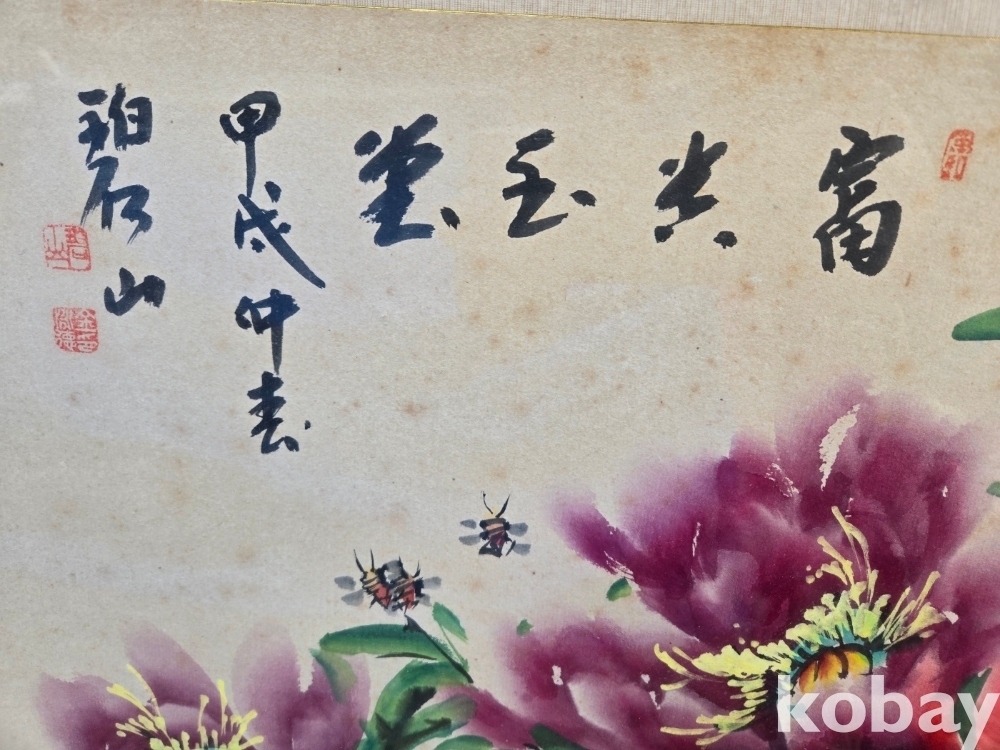 富貴玉堂
甲戌仲春
碧山
kobay